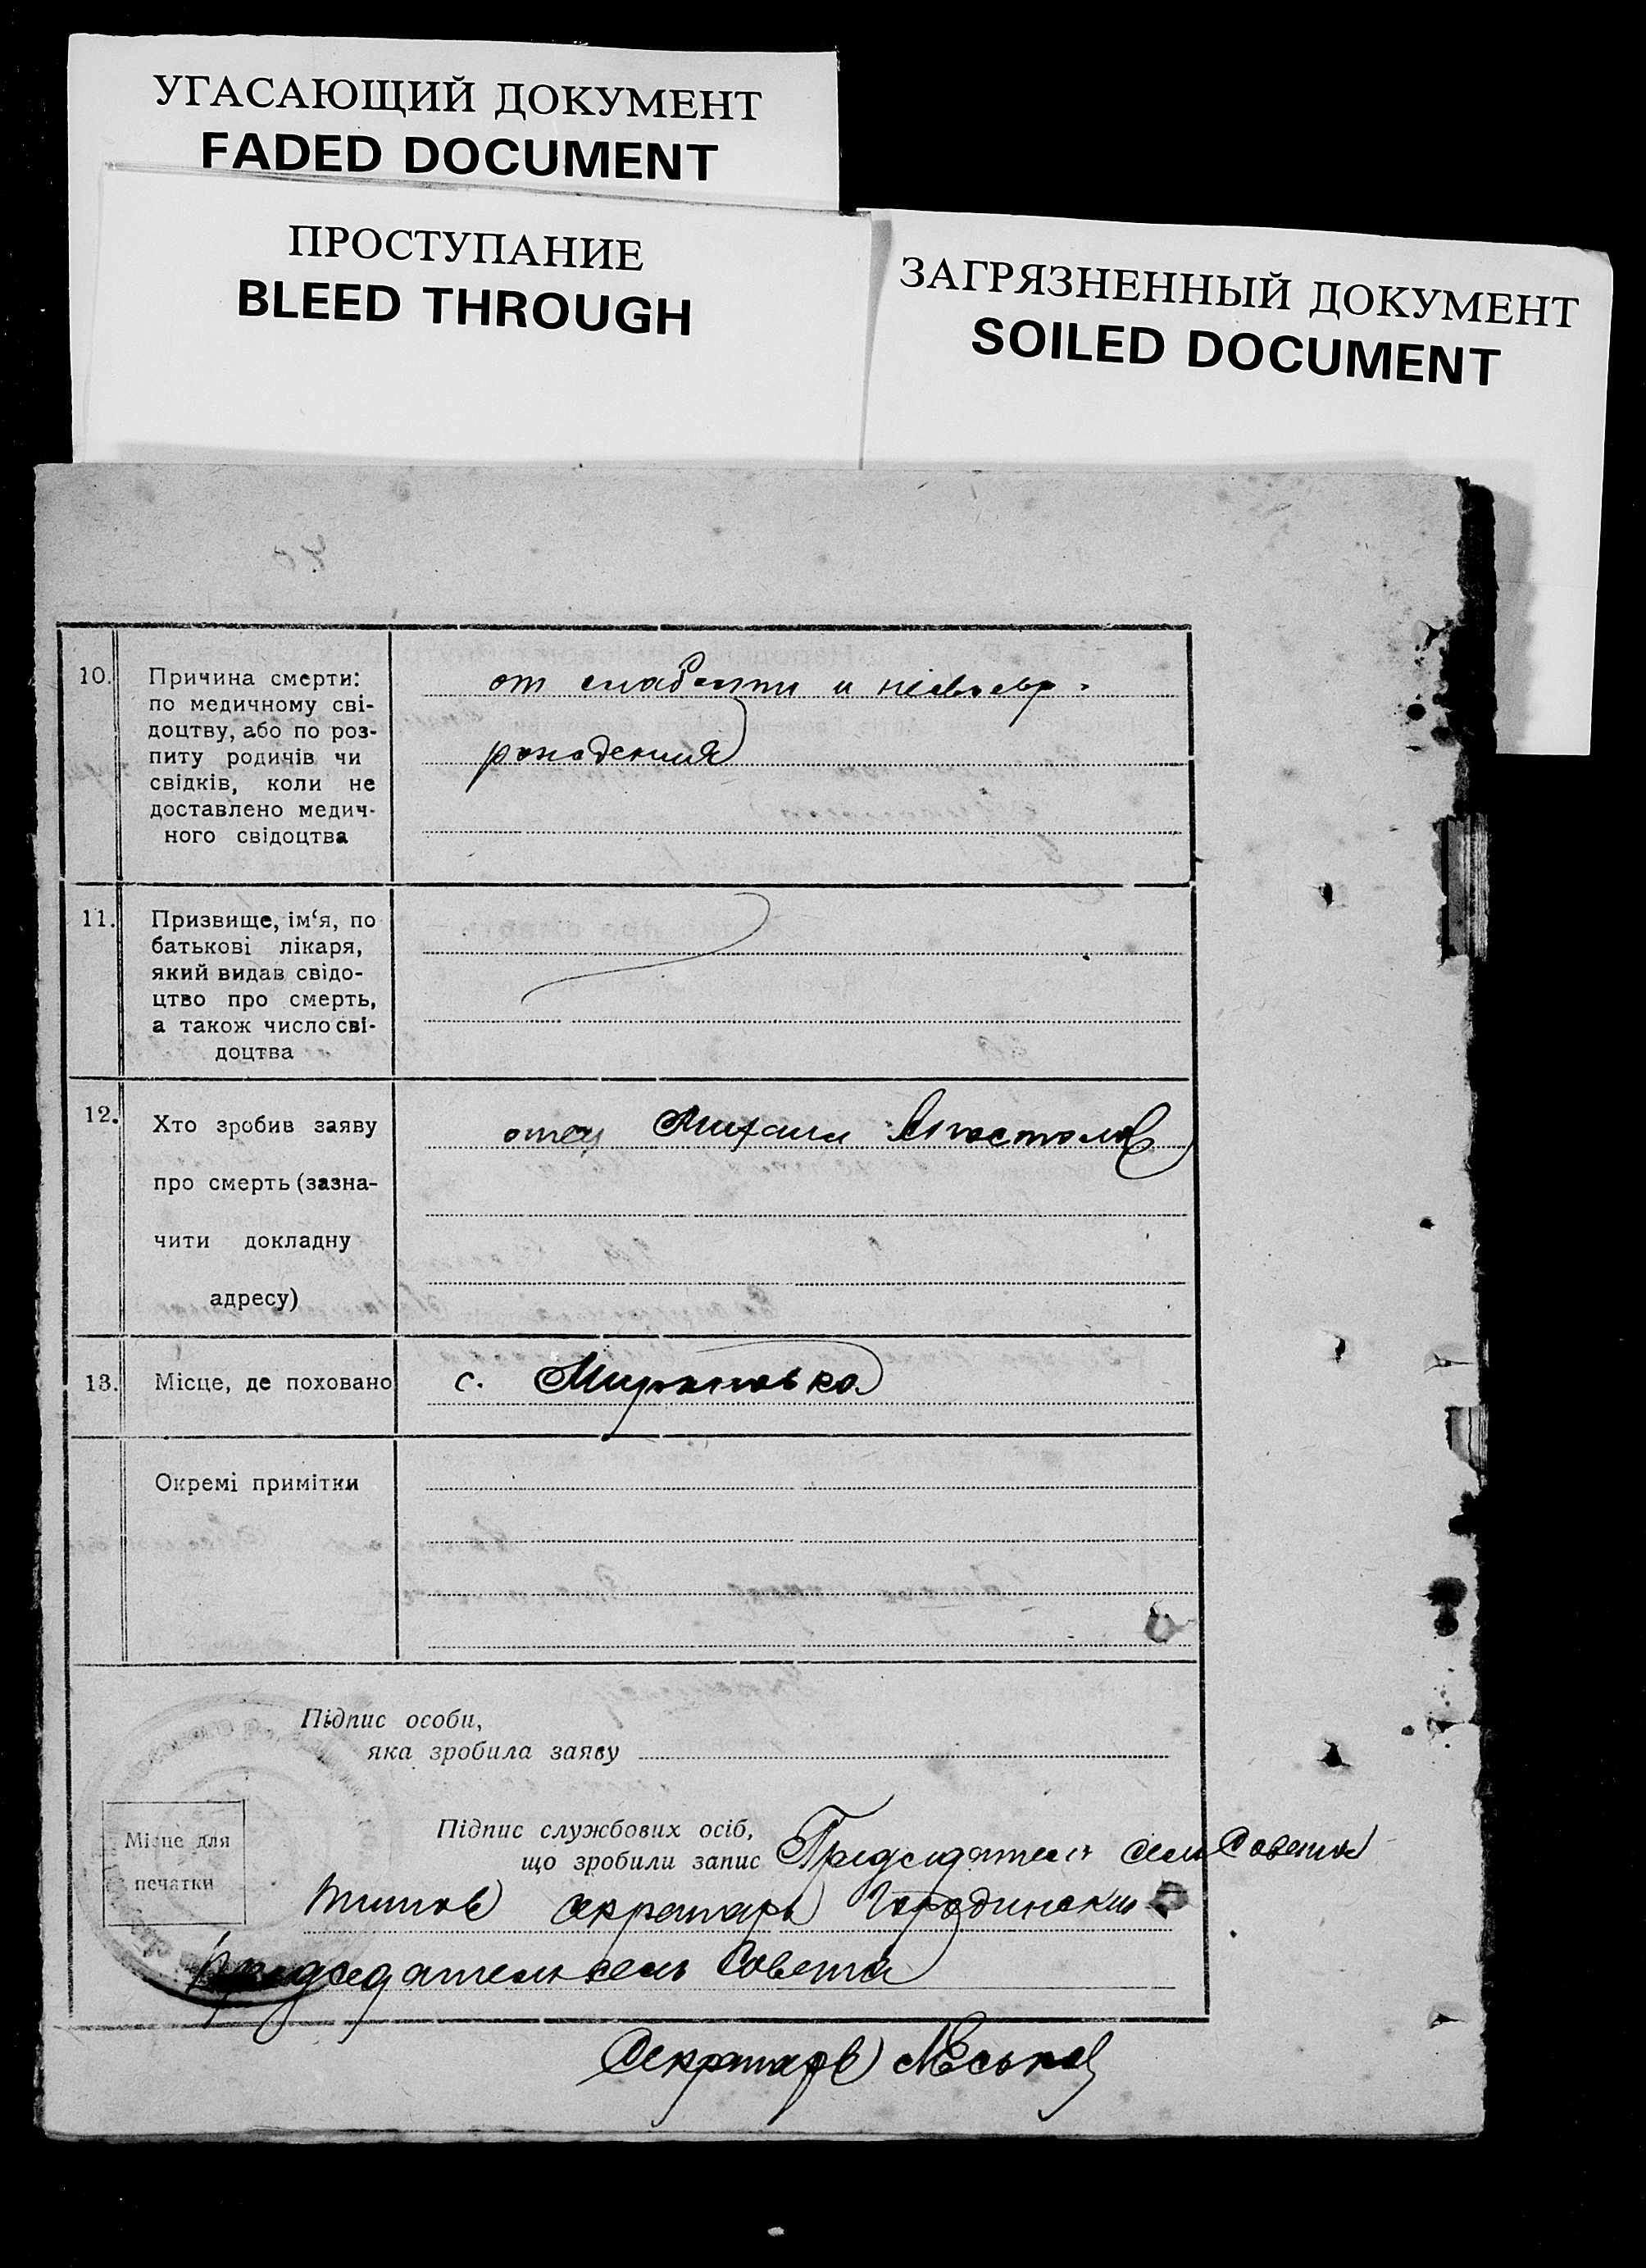 УГАСАЮЩИЙ ДОКУМЕНТ
FADED DOCUMENT
ПРОСТУПАНИЕ
BLEED THROUGH
ЗАГРЯЗНЕННЫЙ ДОКУМЕНТ
SOILED DOCUMENT
10.
Причина смерти:
по медичному сві-
доцтву, або по роз-
питу родичів чи
свідків, коли не
доставлено медич-
ного свідоцтва
от слабости и несвоевр.
рождения
11.
Призвище, ім‘я, по
батькові лікаря,
який видав свідо-
цтво про смерть,
а також число сві-
доцтва
12.
Хто зробив заяву
про смерть (зазна-
чити докладну
адресу)
отец Михаил Апостолов
13.
Місце, де поховано
с. Мирановка
Окремі примітки
Підпис особи,
яка зробила заяву
Підпис службових осіб,
що зробили запис
Председатель сель Совета
Місце для
печатки
Титов секретарь Городинский
Председатель сель Совета
Секретарь